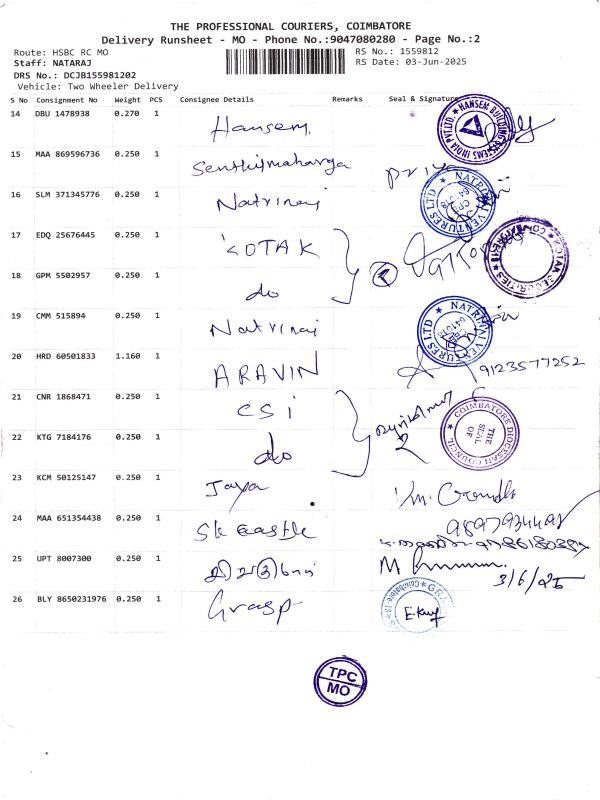 THE PROFESSIONAL COURIERS, COIMBATORE
Delivery Runsheet - MO - Phone No.:9047080280 - Page No.:2
Route: HSBC RC MO
Staff: NATARAJ
DRS No.: DCJB155981202
Vehicle: Two Wheeler Delivery
RS No.: 1559812
RS Date: 03-Jun-2025
S No Consignment No Weight PCS Consignee Details Remarks Seal & Signature
14 DBU 1478938 0.270 1 Hansem
15 MAA 869596736 0.250 1 Priya
16 SLM 371345776 0.250 1 Natrinai NATRINAI VENTURES LTD
17 EDQ 25676445 0.250 1 KOTAK KOTAK SECURITIES
18 GPM 5502957 0.250 1 do
19 CMM 515894 0.250 1 Natrinai NATRINAI VENTURES LTD
20 HRD 60501833 1.160 1 ARAVIN 9123577252
21 CNR 1868471 0.250 1 CSi
22 KTG 7184176 0.250 1 do 2 COIMBATORE DIOCESAN COUNCIL THE SEAL OF
23 KCM 50125147 0.250 1 Jaya
24 MAA 651354438 0.250 1 Sk Castle
25 UPT 8007300 0.250 1 M 3/6/25
26 BLY 8650231976 0.250 1 Grasp
TPC
MO